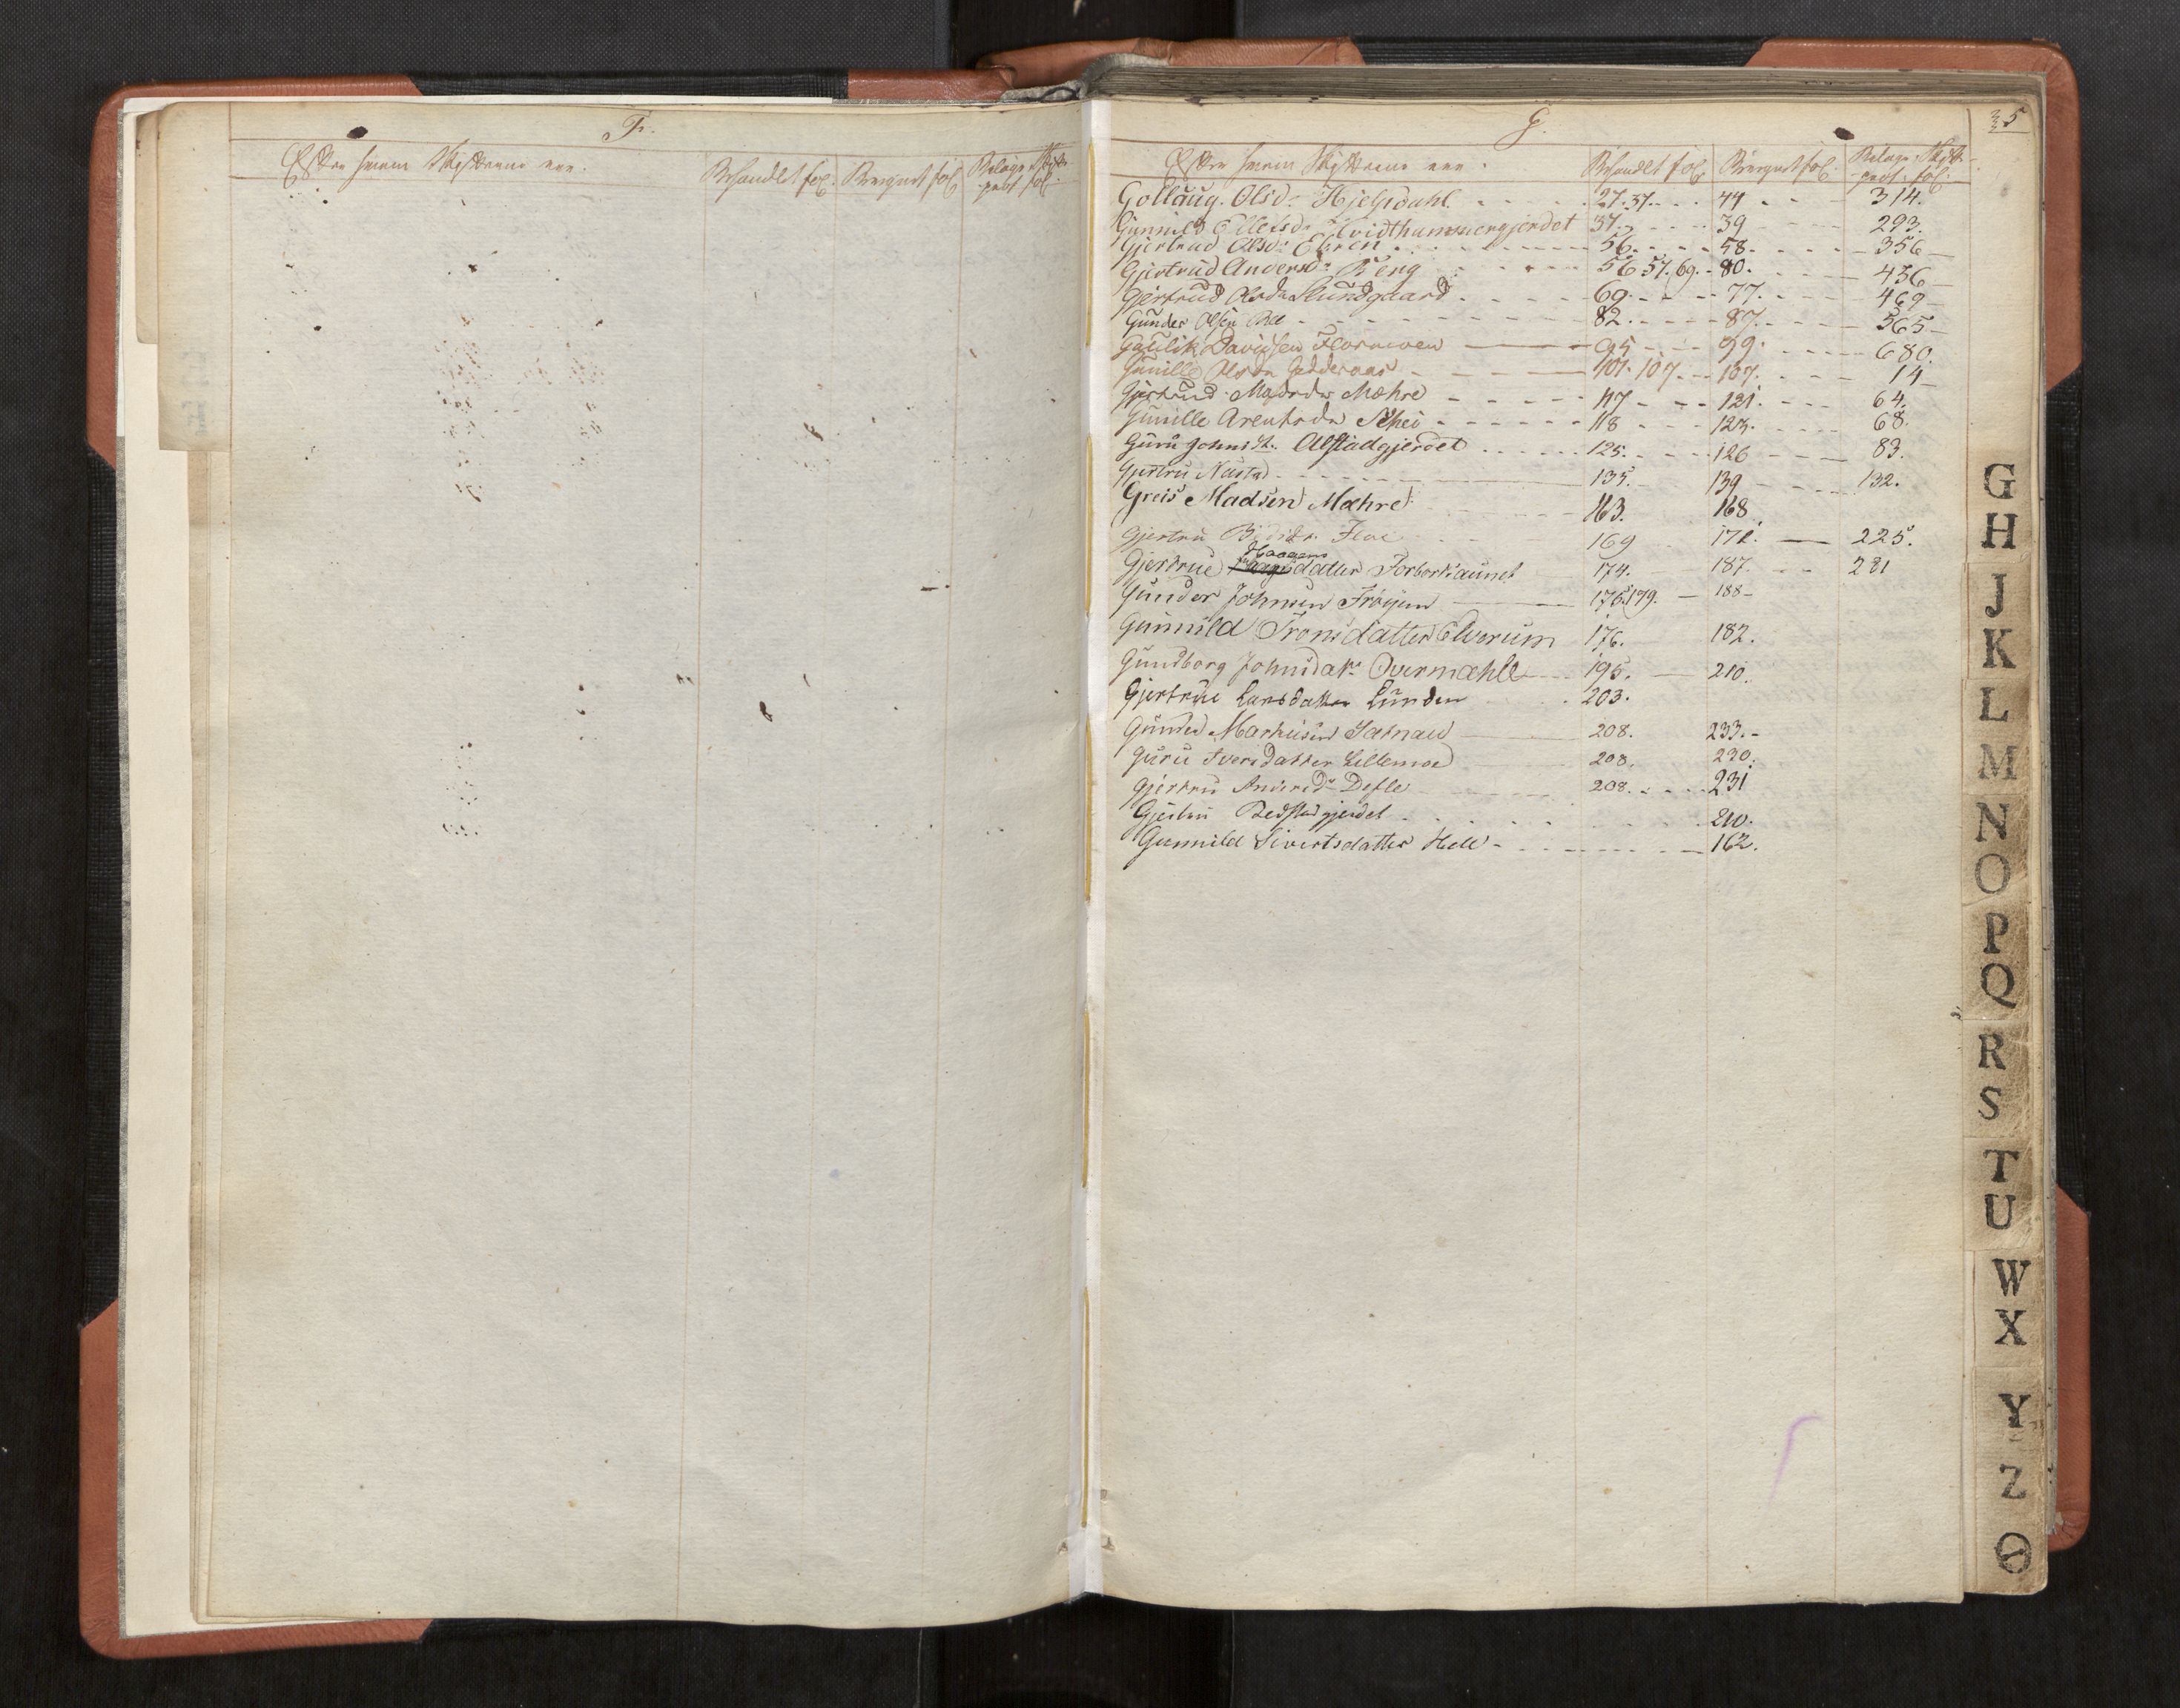 F.
Efter hvem Skifterne ere.
Behandlet fol. Beregnet fol.
prot. fol.
G.
5
Efter hvem Skifterne ere.
Behandlet fol. Beregnet fol.
prot. fol.
Gollaug. Olsd: Hjelsdahl 27. 37. 44 314.
Gunnild Ellefsd: Hvidthammergjerdet 37. 39 293.
Gjertrud Olsd: 56. 58. 356
Gjertrud Andersd: Berg 56 57. 69. 80. 436
Gjertrud Olsdr Lundgaard 69. 77. 469
Gunder Olsen 82. 87. 565
Davidsen Flornæven 95 99. 680.
Gunille Olsdr Gedderaas 101. 107. 107. 14
Gjertrud Madsdr Mæhre 117 121. 64.
Gunille Arentsdr Schei 118 123. 68.
Guru Johnsdt. Alstadgjerdet 125. 126 83.
Gjertru Nustad 135. 139 132.
Greis Madsen Mæhre 163. 168
Gjertru 169 171. 225.
Haagens
Gjertrue datter Forborksaunet 174. 187. 221
Gunder Johnsen Frøijen 176. 179. 188
Gunnild Tronsdatter Elverum 176. 182.
Gundborg Johnsdatr Overmæhle 195. 210.
Gjertrue Larsdatter Lunden 203.
Gunder Markusen 208. 233.
Guru Iversdatter Lillemoe 208. 230.
Gjertru Andersdr Defle 208. 231
Gjertru Bedstadgjerdet 210.
Gunnild Sivertsdatter Hell 162.
G
H
J
K
L
M
N
O
P
Q
R
S
T
U
W
X
Y
Z
Θ